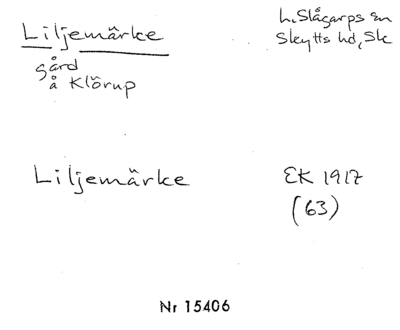 Liljemärke
L. Slågarps sn
Skytts hd, Sk
gård
å Klörup
Liljemärke
EK 1917
(63)
Nr 15406